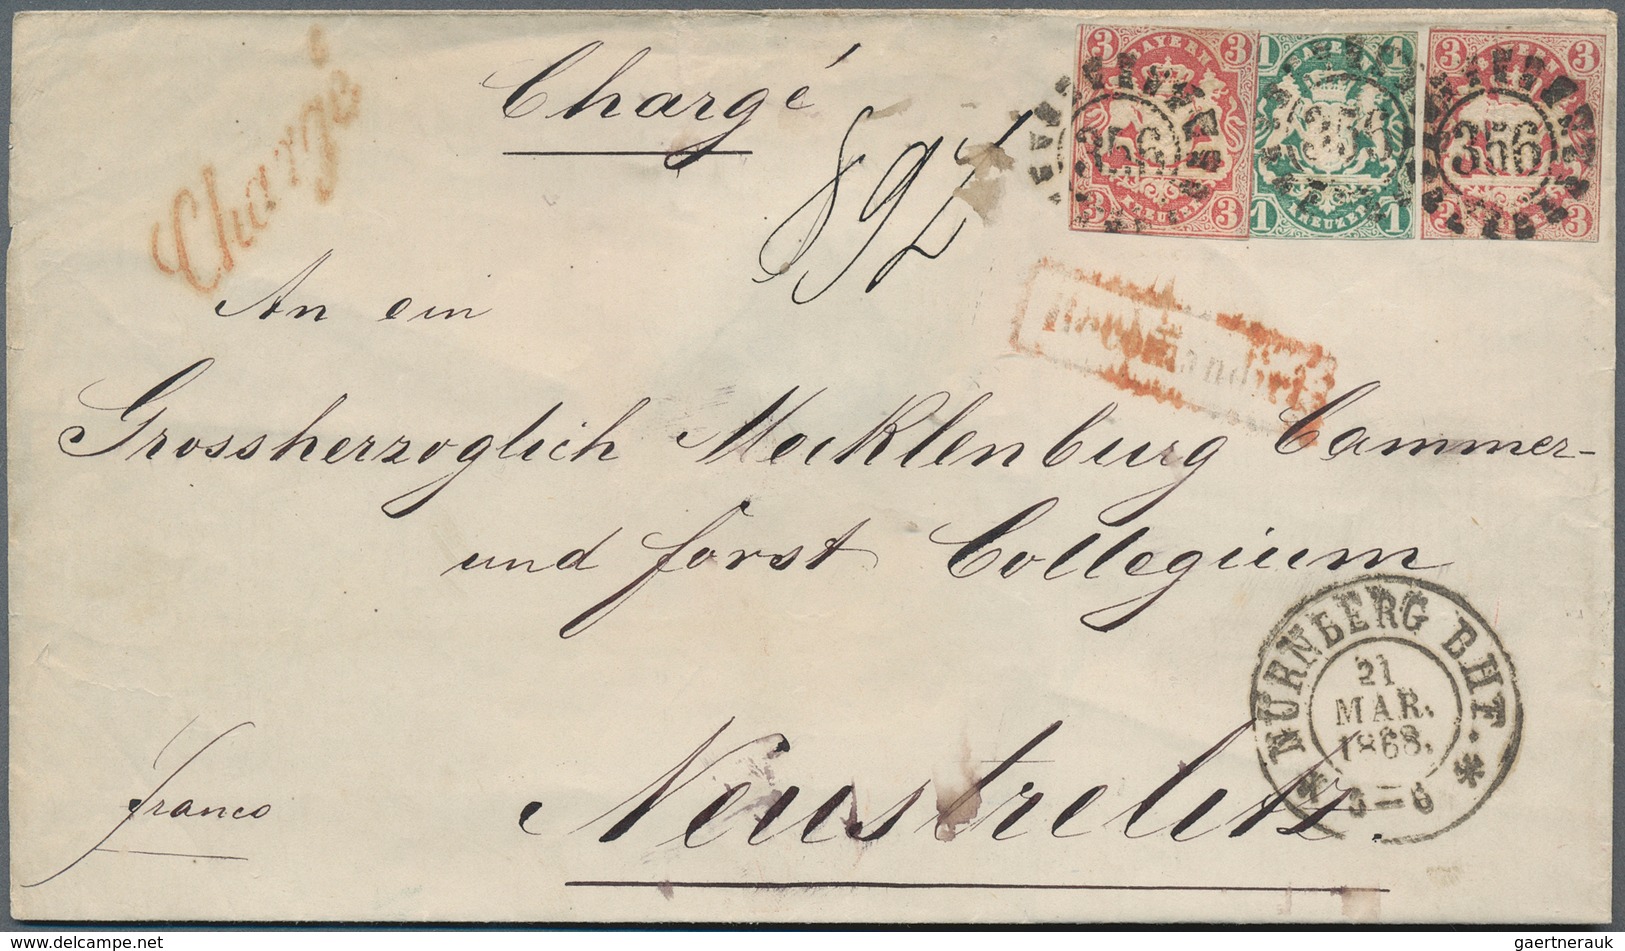 Chargé
Chargé
892
3 BAYERN 3
3 KREUZER 3
356
1 1
1 KREUZER 1
356
3 3
3 3
356
An ein
Grossherzoglich Mecklenburg Cammer-
und forst Collegium
Neustrelitz.
franco
NÜRNBERG B.HF.
21
MAR.
1868.
5–6
www.delcampe.net
gaertnerauk